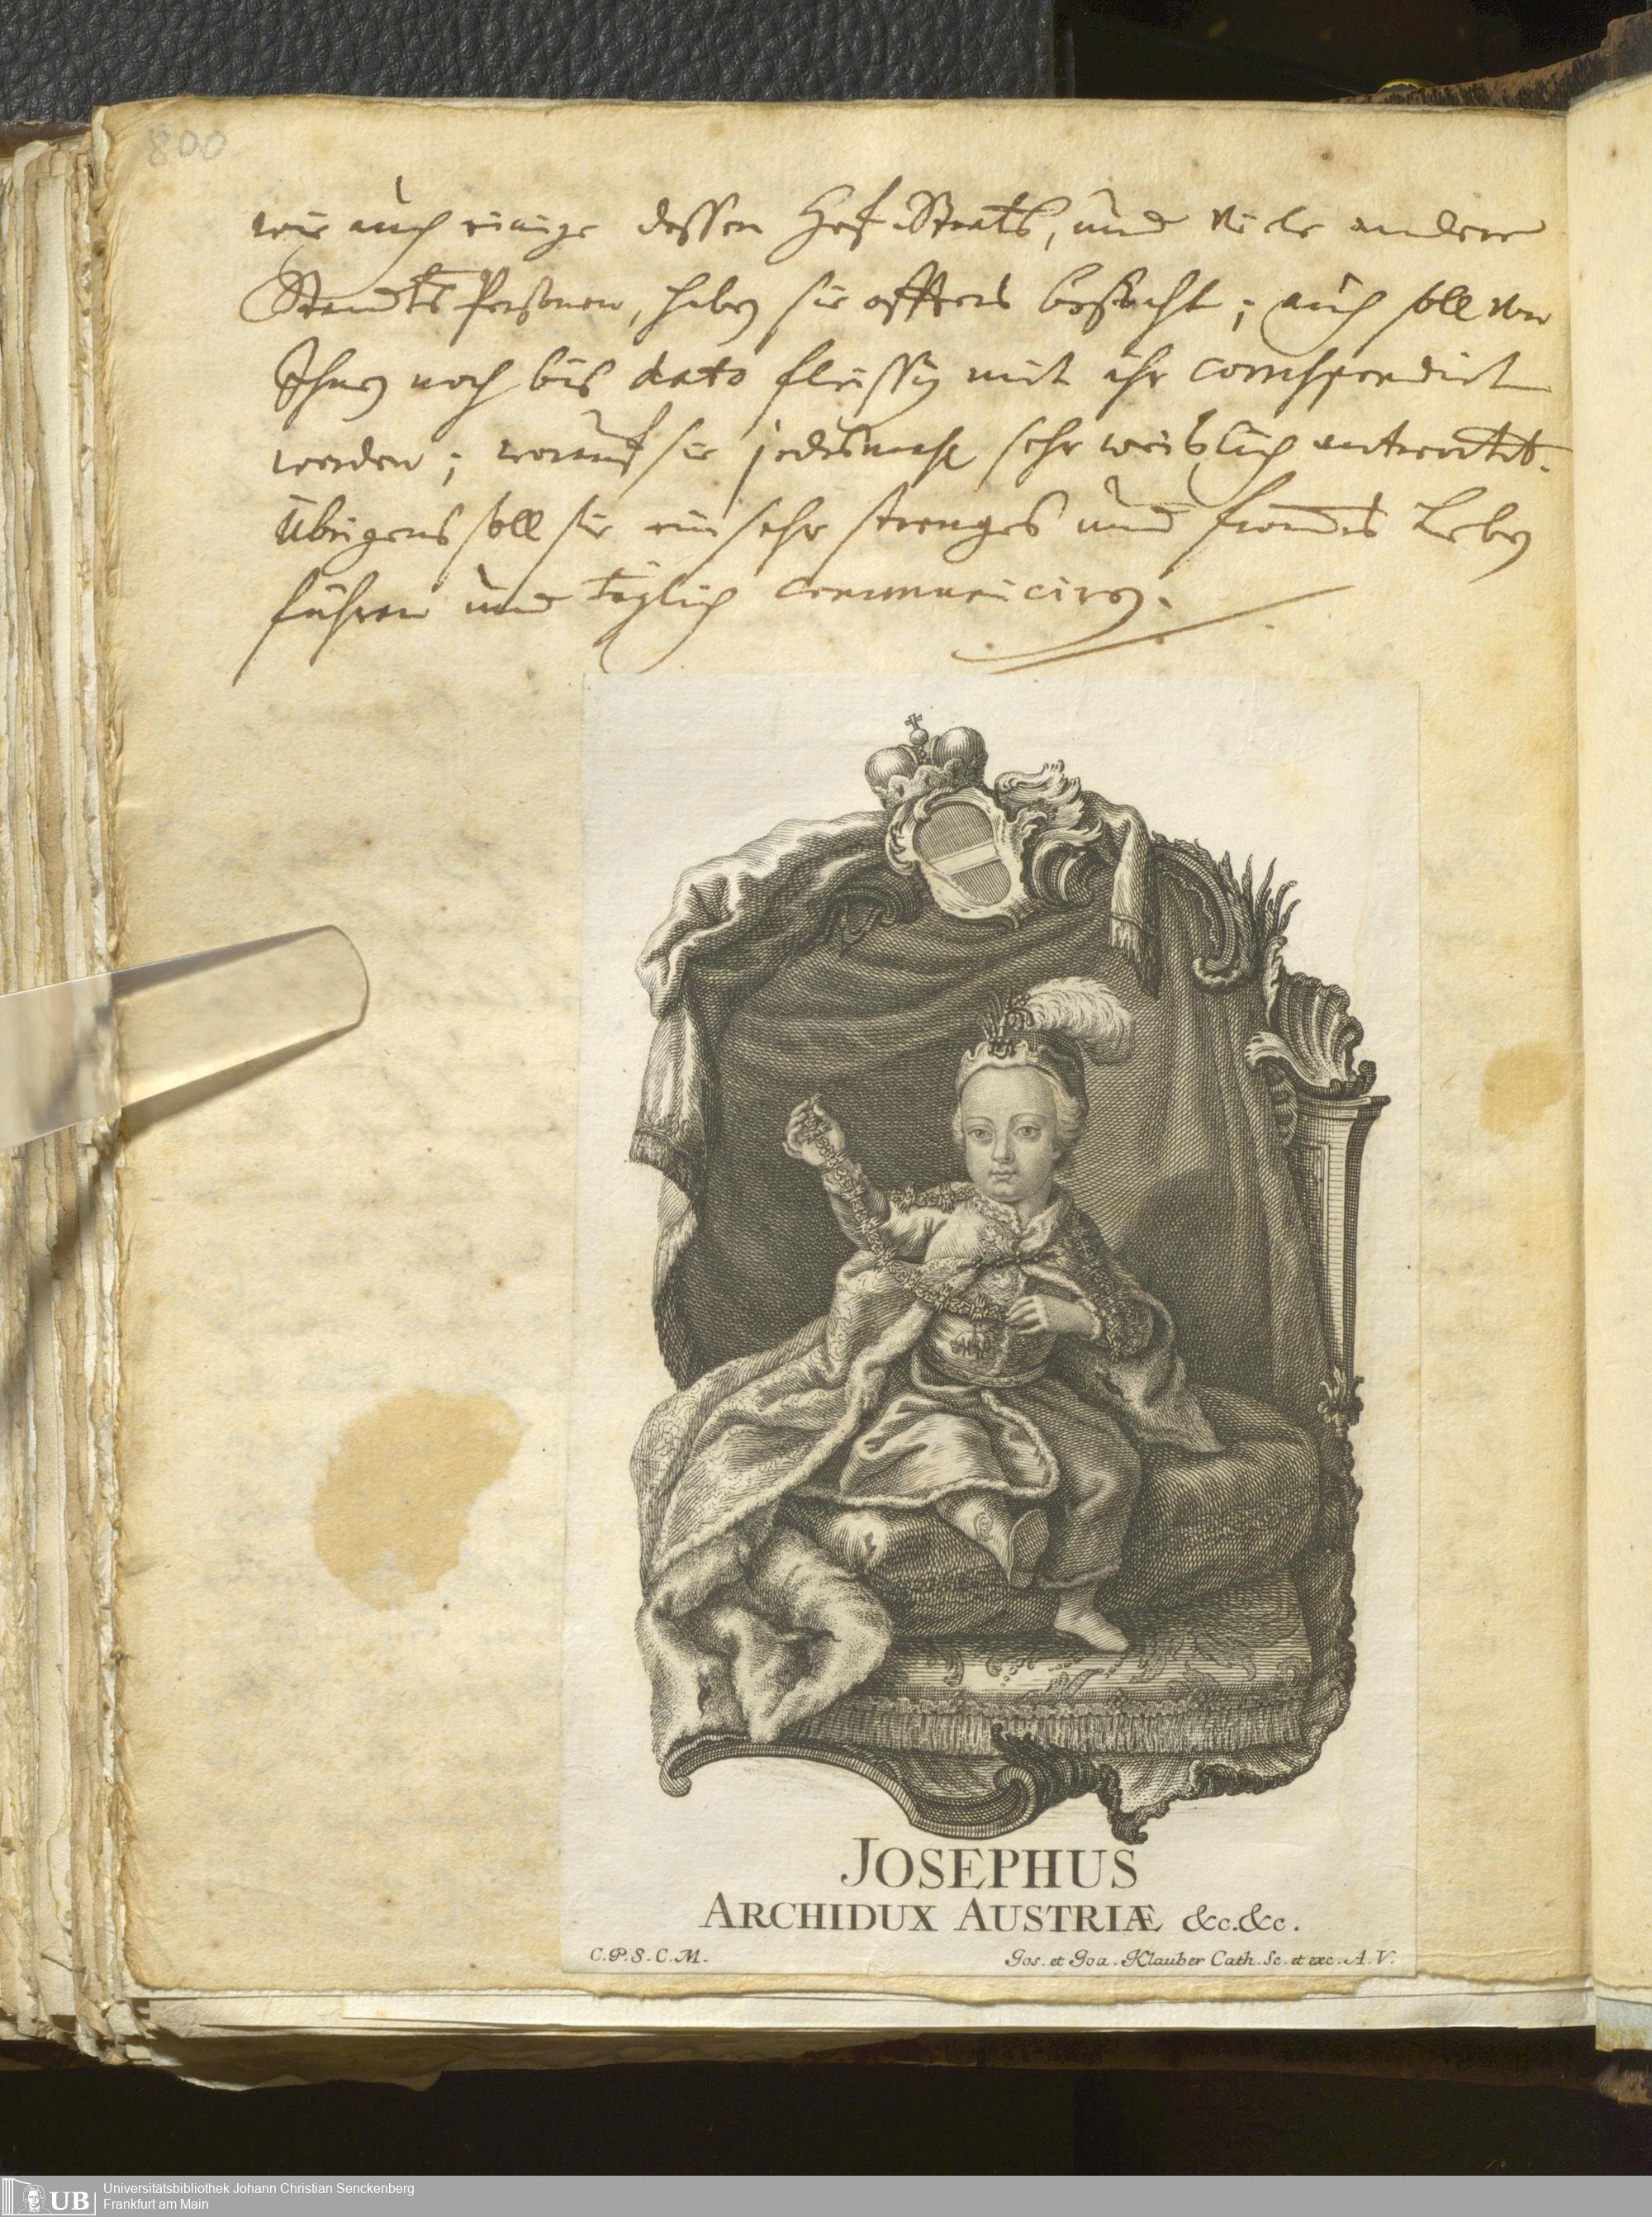 800
wie auch einige dessen Hof-Staats, und viele andere
Standts Personen, haben sie öffters besucht; auch soll von
Ihnen noch bis dato fleissig mit ihr correspendirt
werden; worauf sie jedesmahl sehr weißlich antwortet.
Übrigens soll sie ein sehr strenges und from̅es Leben
führen und täglich communiciren.
JOSEPHUS
ARCHIDUX AUSTRIÆ &c.&c.
C.P.S.C.M.
Jos. et Joa. Klauber Cath. Sc. et exc. A.V.
UB
Universitätsbibliothek Johann Christian Senckenberg
Frankfurt am Main